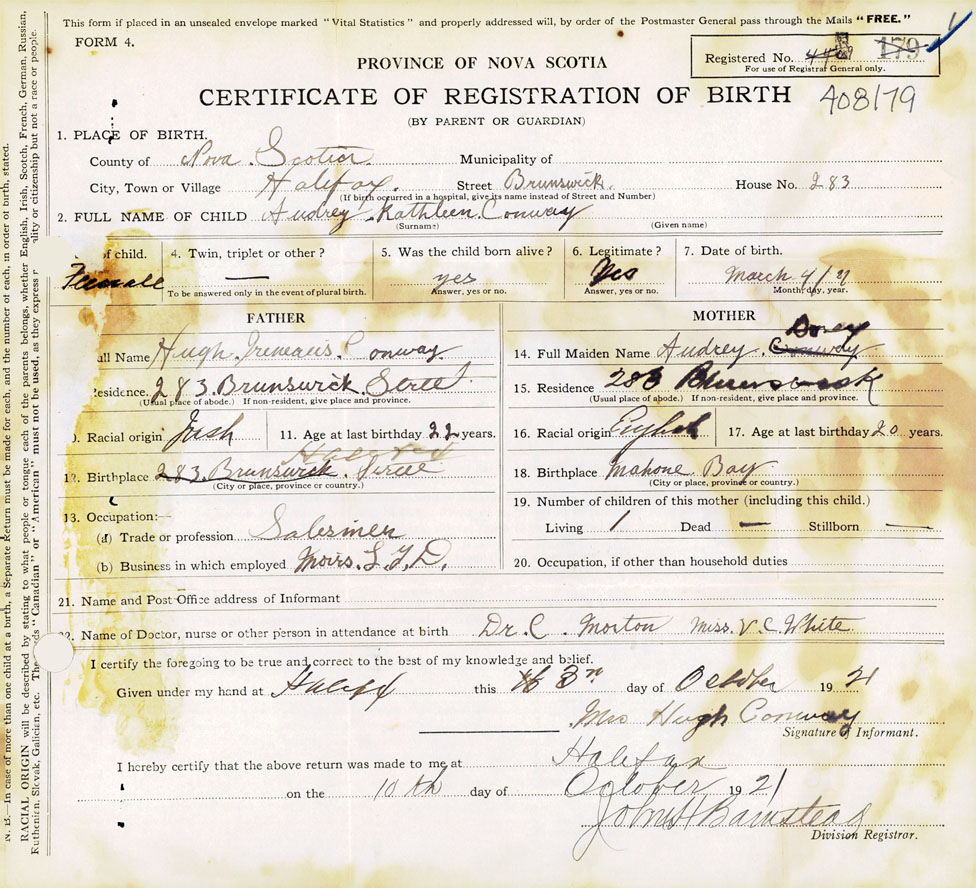 This form if placed in an unsealed envelope marked "Vital Statistics" and properly addressed will, by order of the Postmaster General pass through the Mails "FREE."
FORM 4.
Registered No. 179
For use of Registrar General only.
PROVINCE OF NOVA SCOTIA
CERTIFICATE OF REGISTRATION OF BIRTH 408179
(BY PARENT OR GUARDIAN)
1. PLACE OF BIRTH.
County of Nova Scotia Municipality of
City, Town or Village Halifax. Street Brunswick. House No. 283
(If birth occurred in a hospital, give its name instead of Street and Number)
2. FULL NAME OF CHILD Audrey Kathleen Conway
(Surname) (Given name)
of child. 4. Twin, triplet or other? 5. Was the child born alive? 6. Legitimate? 7. Date of birth.
Female — yes Yes March 4/21
To be answered only in the event of plural birth. Answer, yes or no. Answer, yes or no. Month, day, year.
FATHER
ull Name Hugh Ireneaus Conway
Residence. 283 Brunswick Street
(Usual place of abode.) If non-resident, give place and province.
0. Racial origin Irish 11. Age at last birthday 22 years.
Halifax
12. Birthplace 283 Brunswick Street
(City or place, province or country.)
13. Occupation:—
(a) Trade or profession Salesmen
(b) Business in which employed Moirs. L.T.D.
MOTHER
14. Full Maiden Name Audrey Conway
15. Residence 283 Brunswick
(Usual place of abode.) If non-resident, give place and province.
16. Racial origin English 17. Age at last birthday 20 years.
18. Birthplace Mahone Bay
(City or place, province or country.)
19. Number of children of this mother (including this child.)
Living 1 Dead — Stillborn —
20. Occupation, if other than household duties
21. Name and Post Office address of Informant
22. Name of Doctor, nurse or other person in attendance at birth Dr. C. Morton Miss. V. C. White
I certify the foregoing to be true and correct to the best of my knowledge and belief.
Given under my hand at Halifax this 3rd day of October 1921
Mrs Hugh Conway
Signature of Informant.
I hereby certify that the above return was made to me at Halifax
on the 10th day of October 1921
John H Barnstead
Division Registrar.
N. B.—In case of more than one child at a birth, a Separate Return must be made for each, and the number of each, in order of birth, stated.
RACIAL ORIGIN will be described by stating to what people or tongue each of the parents belongs, whether English, Irish, Scotch, French, German, Russian,
Ruthenian, Slovak, Galician, etc. The ds "Canadian" or "American" must not be used, as they express ality or citizenship but not a race or people.